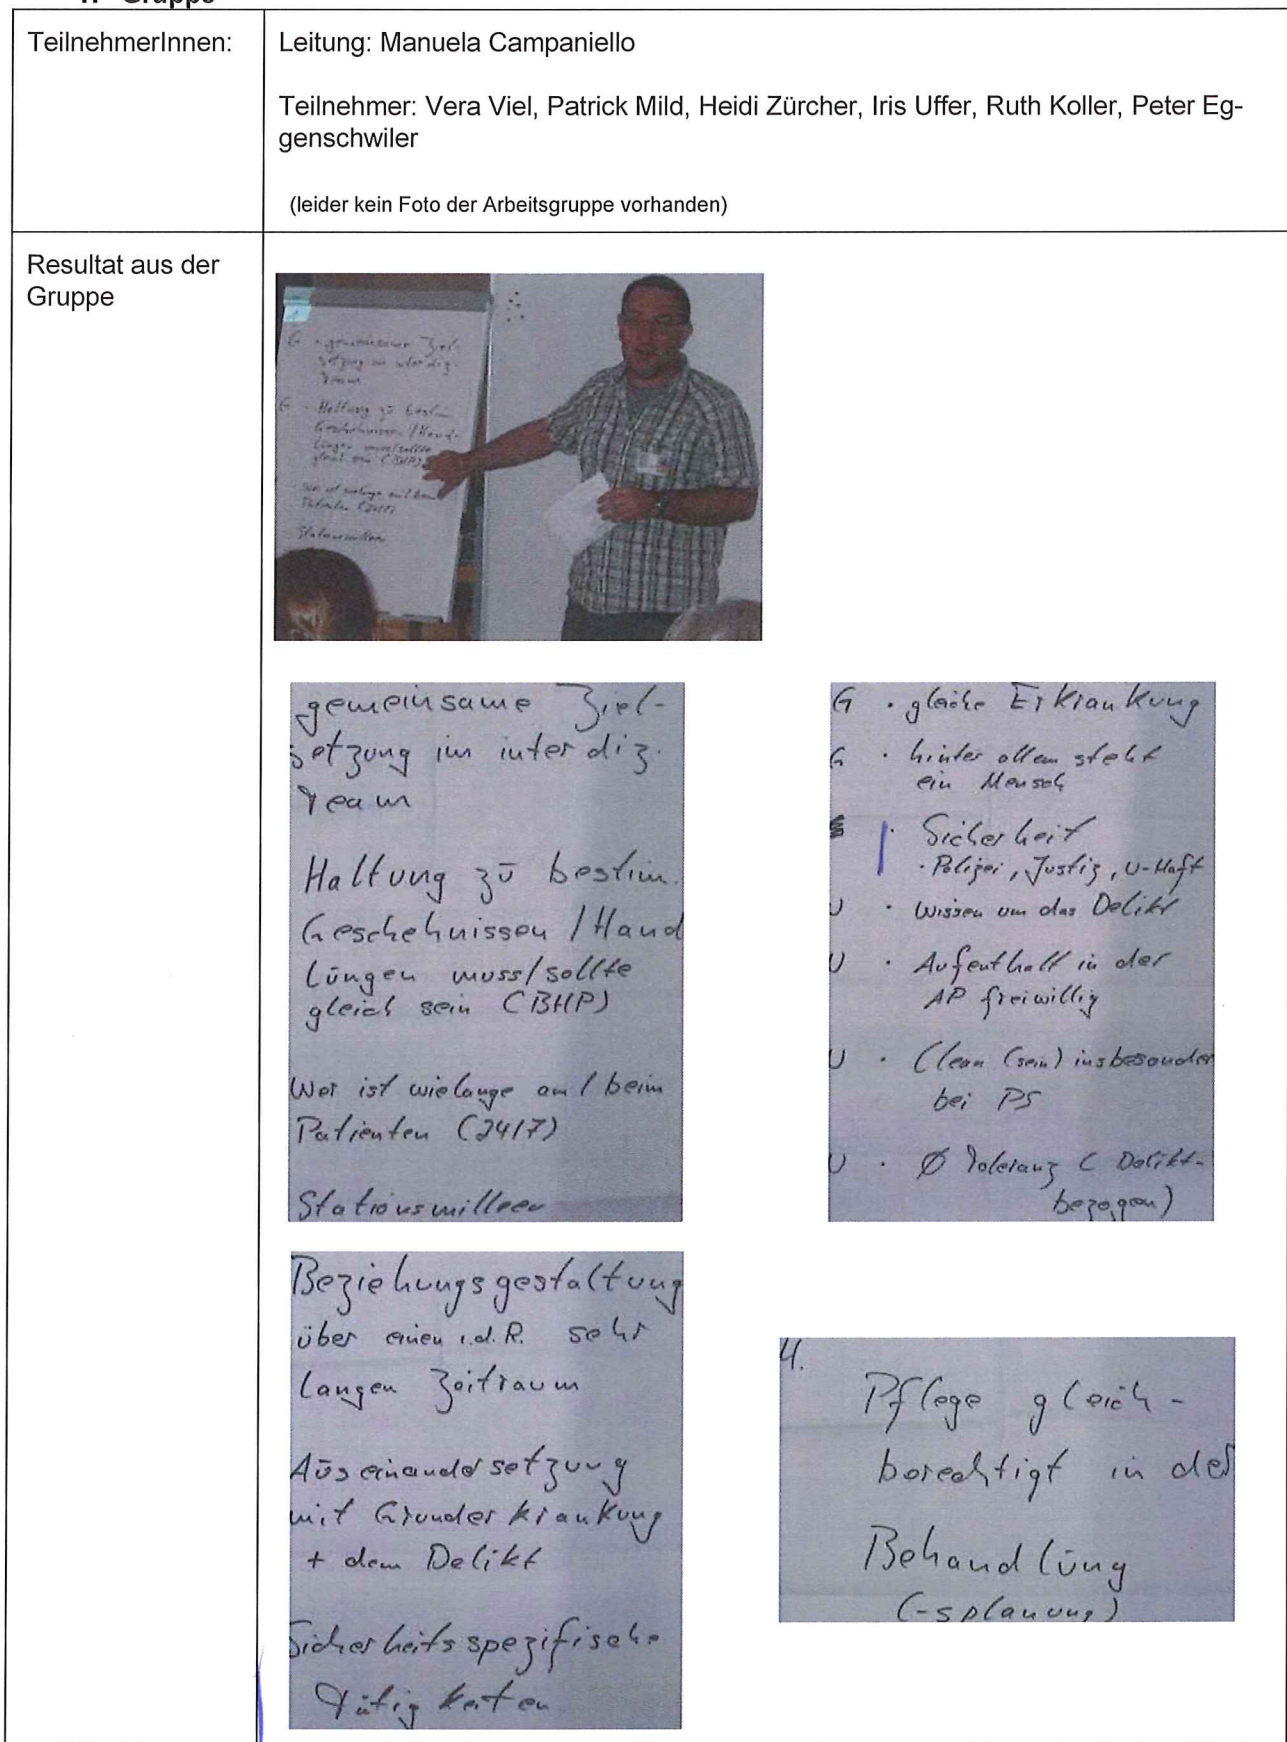 Gruppe
TeilnehmerInnen:
Leitung: Manuela Campaniello
Teilnehmer: Vera Viel, Patrick Mild, Heidi Zürcher, Iris Uffer, Ruth Koller, Peter Eg-
genschwiler
(leider kein Foto der Arbeitsgruppe vorhanden)
Resultat aus der
Gruppe
G - gemeinsame Ziel-
setzung im interdiz.
Team
G - Haltung zu bestim.
Geschehnissen / Hand-
lungen muss/sollte
gleich sein (BHP)
Wer ist wielange am / beim
Patienten (24/7)
Stationsmilieu
gemeinsame Ziel-
setzung im interdiz.
Team
Haltung zu bestim.
Geschehnissen / Hand
lungen muss/sollte
gleich sein (BHP)
Wer ist wielange am / beim
Patienten (24/7)
Stationsmillieu
G · gleiche Erkrankung
G · hinter allem steht
ein Mensch
· Sicherheit
· Polizei, Justiz, U-Haft
U · Wissen um das Delikt
U · Aufenthalt in der
AP freiwillig
U · Clean (sein) insbesonder
bei PS
U · Ø Toleranz ( Delikt-
bezogen)
Beziehungsgestaltung
über einen i.d.R. sehr
langen Zeitraum
Auseinandersetzung
mit Grunderkrankung
+ dem Delikt
Sicherheitsspezifische
Tätigkeiten
4.
Pflege gleich-
berechtigt in der
Behandlung
(-splanung)